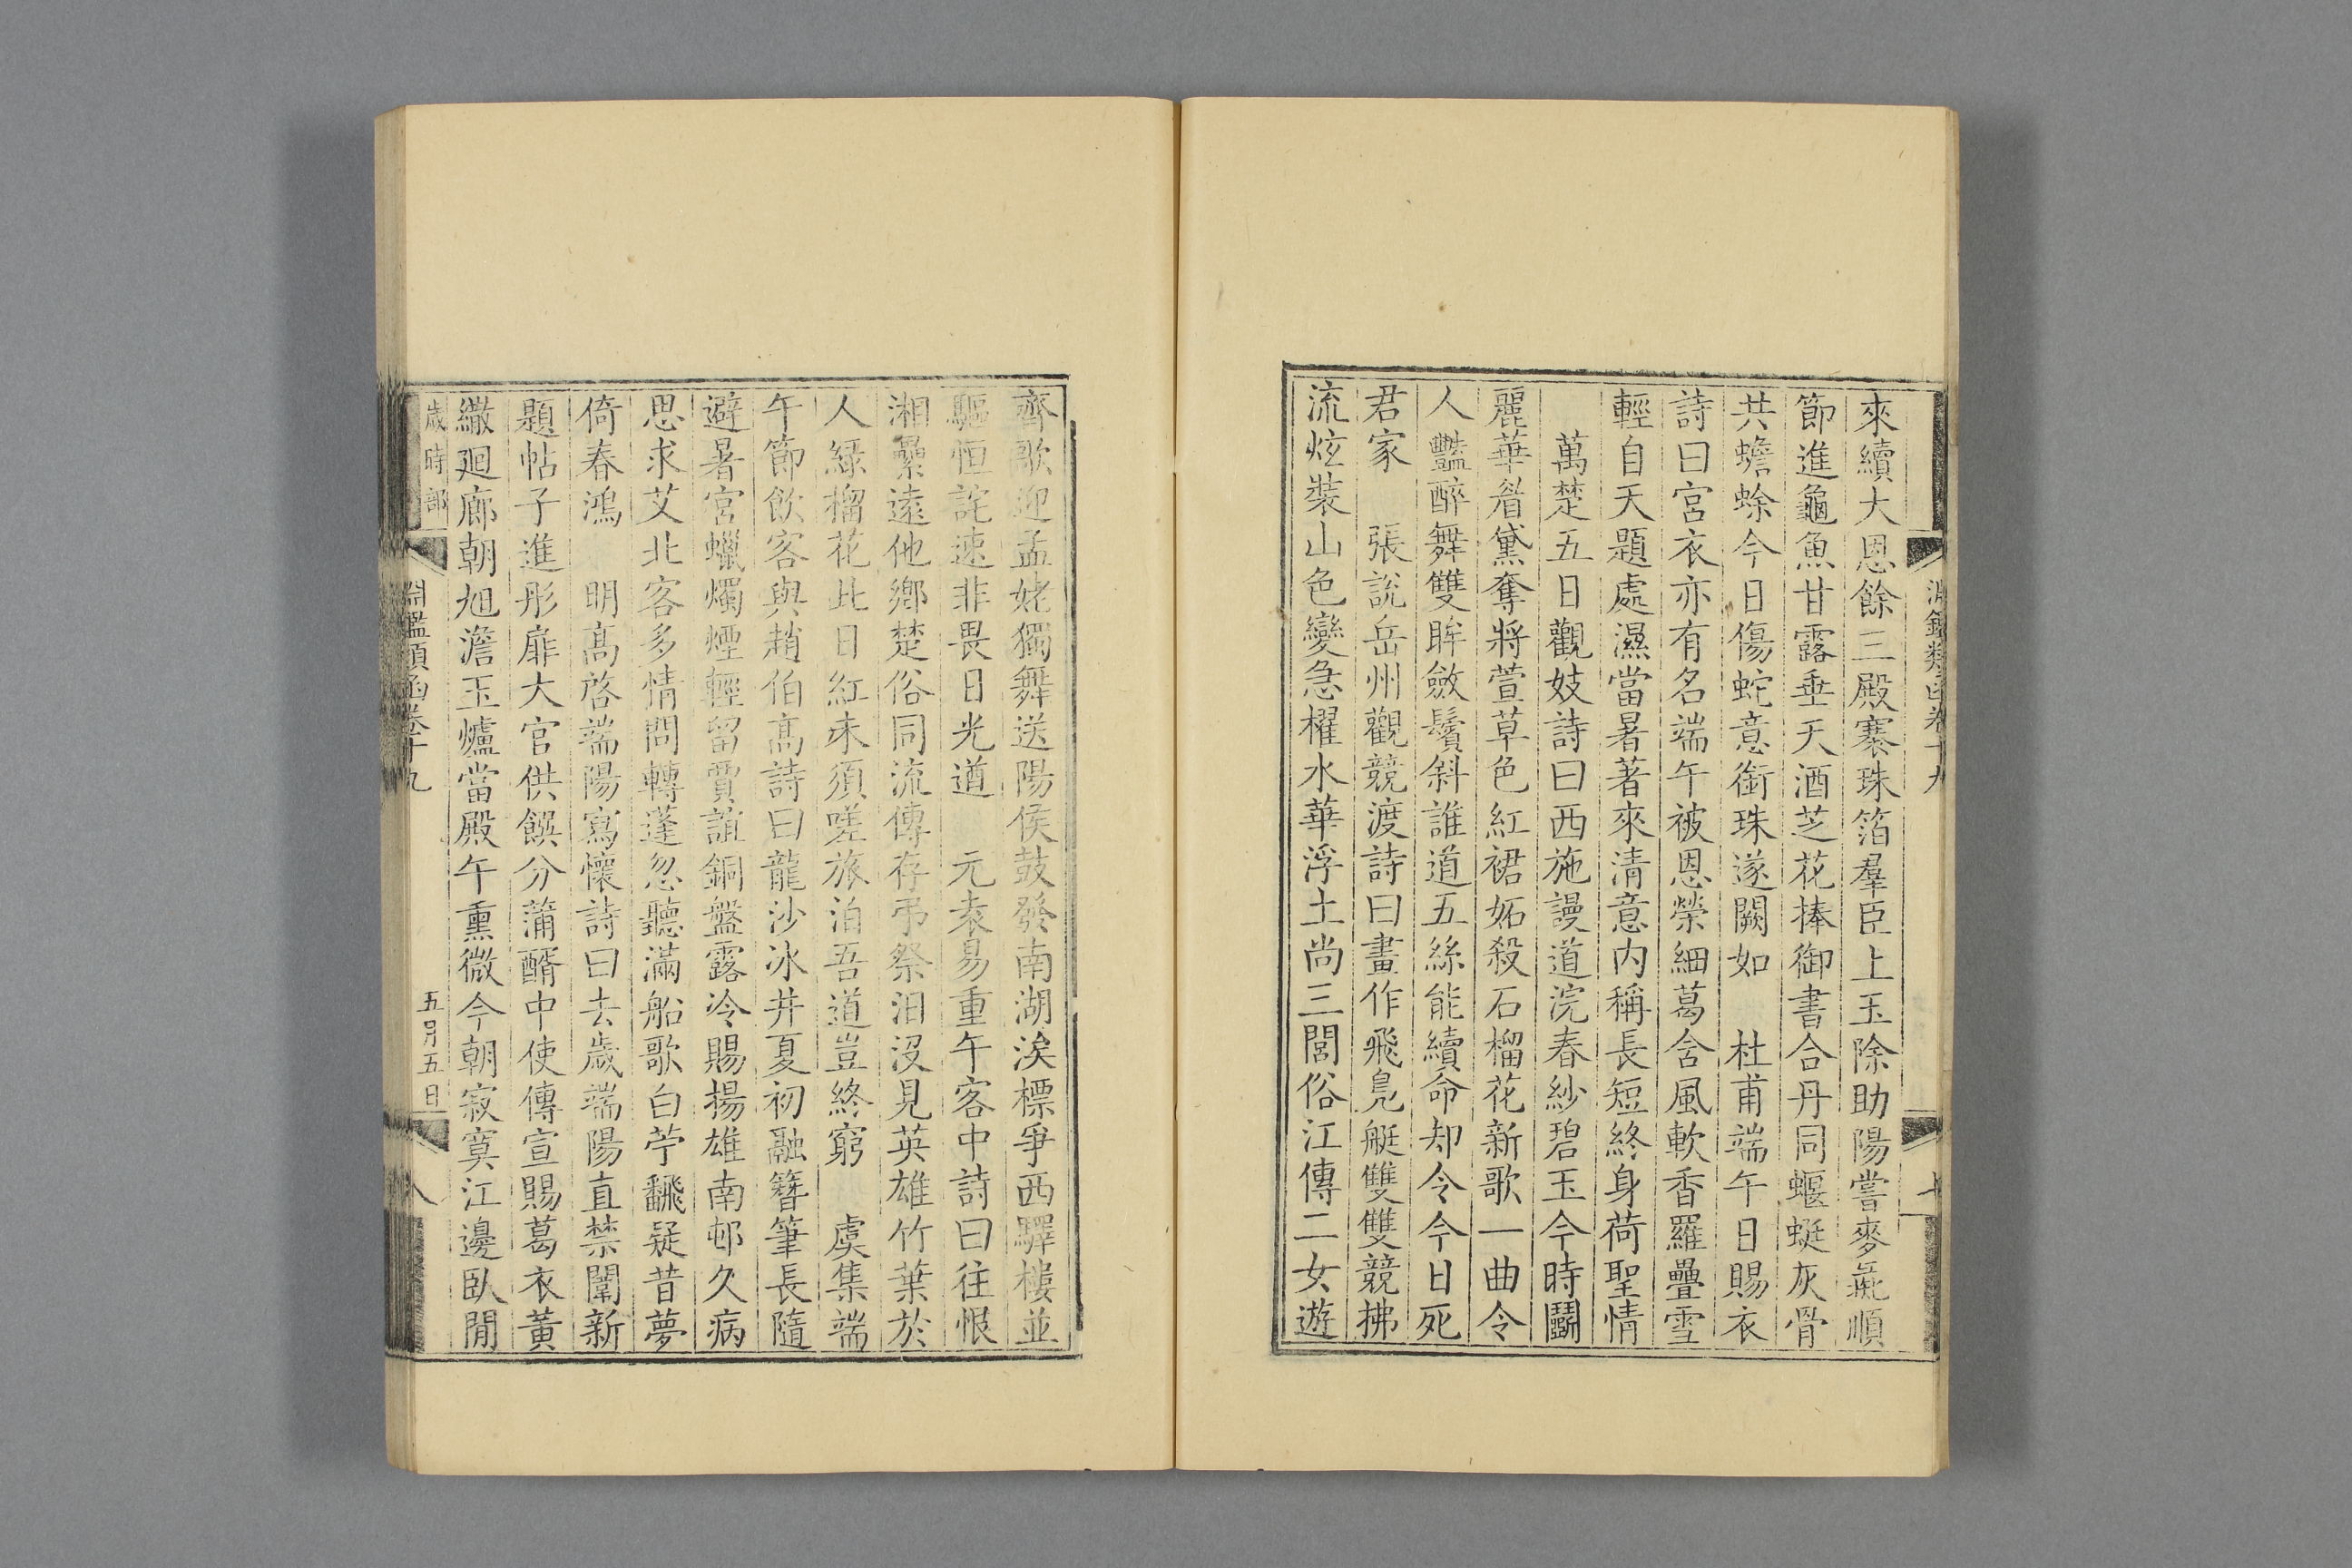 淵鑑類函卷十九
七
來續大恩餘三殿褰珠箔羣臣上玉除助陽嘗麥彘順
節進龜魚甘露垂天酒芝花捧御書合丹同蝘蜓灰骨
共蟾蜍今日傷蛇意銜珠遂闕如　杜甫端午日賜衣
詩曰宮衣亦有名端午被恩榮細葛含風軟香羅疊雪
輕自天題處濕當暑著來清意內稱長短終身荷聖情
萬楚五日觀妓詩曰西施謾道浣春紗碧玉今時鬭
麗華眉黛奪將萱草色紅裙妬殺石榴花新歌一曲令
人豔醉舞雙眸斂鬢斜誰道五絲能續命却令今日死
君家　張說岳州觀競渡詩曰畫作飛鳧艇雙雙競拂
流炫裝山色變急櫂水華浮土尚三閭俗江傳二女遊
齊歌迎孟姥獨舞送陽侯鼓發南湖涘標爭西驛樓並
驅恒詫速非畏日光遒　元袁易重午客中詩曰往恨
湘纍遠他鄉楚俗同流傳存弔祭汨沒見英雄竹葉於
人綠榴花此日紅未須嗟旅泊吾道豈終窮　虞集端
午節飲客與趙伯高詩曰龍沙冰井夏初融簪筆長隨
避暑宮蠟燭煙輕留賈誼銅盤露冷賜揚雄南邨久病
思求艾北客多情問轉蓬忽聽滿船歌白苧翻疑昔夢
倚春鴻　明高啓端陽寫懷詩曰去歲端陽直禁闈新
題帖子進彤扉大官供饌分蒲醑中使傳宣賜葛衣黃
繖廻廊朝旭澹玉爐當殿午熏微今朝寂寞江邊臥閒
歲時部
淵鑑類函卷十九
五月五日
八